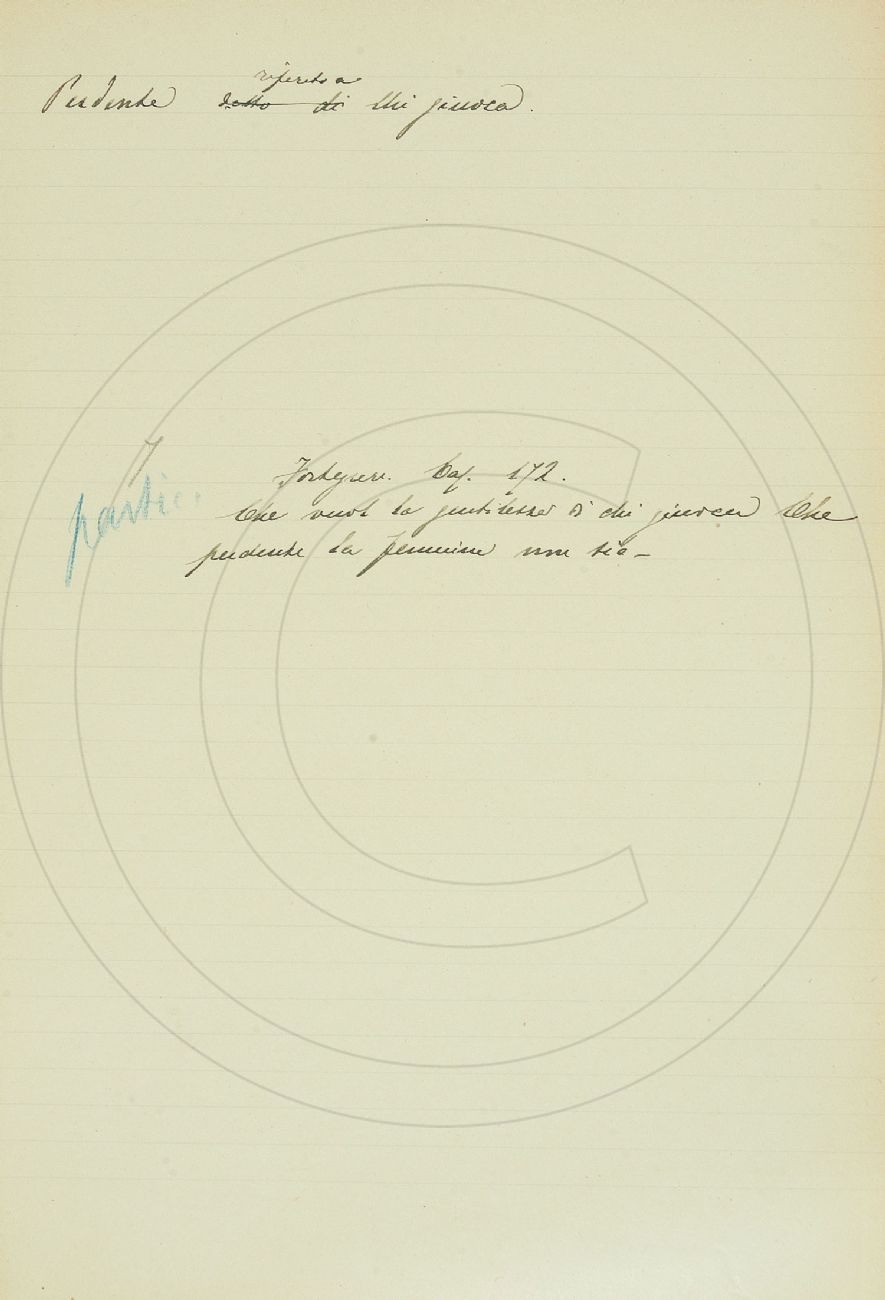 riferito a
Perdente detto di chi giuoca.
Forteguerr. Cap. 172.
partic.
Che vuol la gentilezza di chi giuoca Che
perdente la femmina non sia –